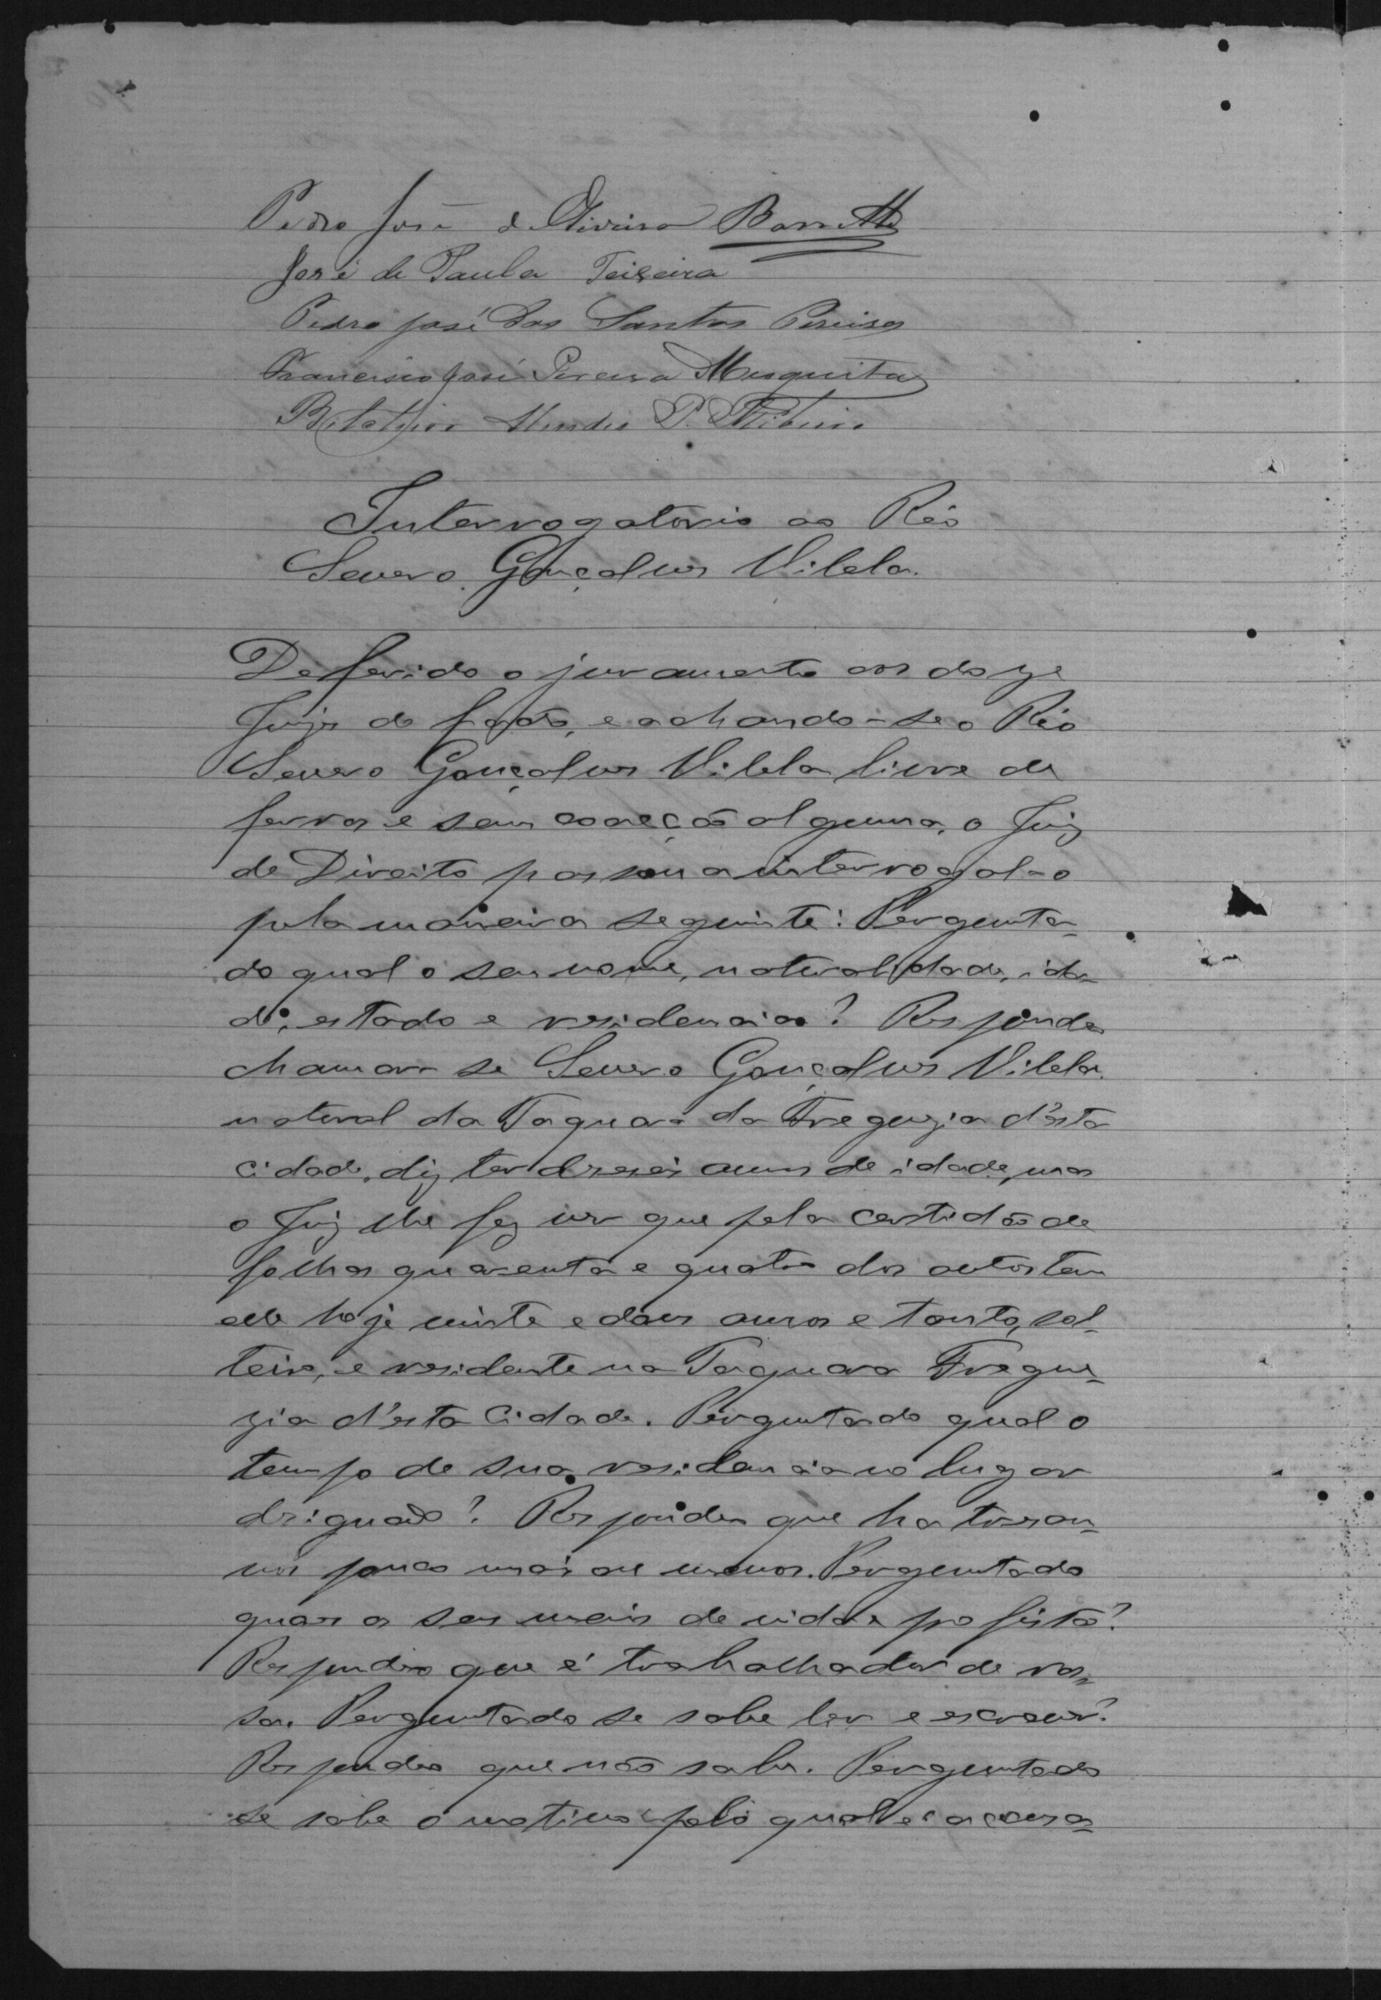 Pedro José d Oliveira Barretto
José de Paula Teixeira
Pedro José dos Santos Pereira
Francisco José Pereira Mesquita
Mendes P. Ribeiro
Interrogatorio ao Réo
Severo Gonçalves Vilela.
Deferido o juramento aos doze
Juizes de facto, e achando-se o Réo
Severo Gonçalves Vilela livre de
ferros e sem coacção alguma, o Juiz
de Direito passou a interrogal-o
pela maneira seguinte: Pergunta-
do qual o seu nome, naturalidade, ida-
de, estado e residencia? Respondeo
chamar-se Severo Gonçalves Vilela.
natural da Taquara da Freguezia d'esta
cidade, diz ter deseseis annos de idade, mas
o Juiz lhe fez ver que pela certidão de
folhas quarenta e quatro dos autos tem
elle hoje vinte e dous annos e tanto, sol-
teiro, e residente na Taquara Fregue-
zia d'esta Cidade. Perguntado qual o
tempo de sua residencia no lugar
designado? Respondeo que ha tres an-
nos pouco mais ou menos. Perguntado
quaes os seus meios de vida e profissão?
Respondeo que é trabalhador de ros-
sa. Perguntado se sabe ler e escrever?
Respondeo que não sabe. Perguntado
se sabe o motivo pelo qual é accusa-